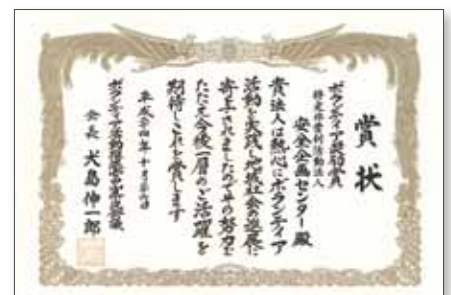 賞状
ボランティア奨励賞
特定非営利活動法人
安全企画センター殿
貴法人は熱心にボランティア
活動を実践し地域社会の進展に
寄与されましたのでその努力を
たたえ今後一層のご活躍を
期待しこれを賞します
平成
年十月
ボランティア活動推進
会長 犬島伸一郎